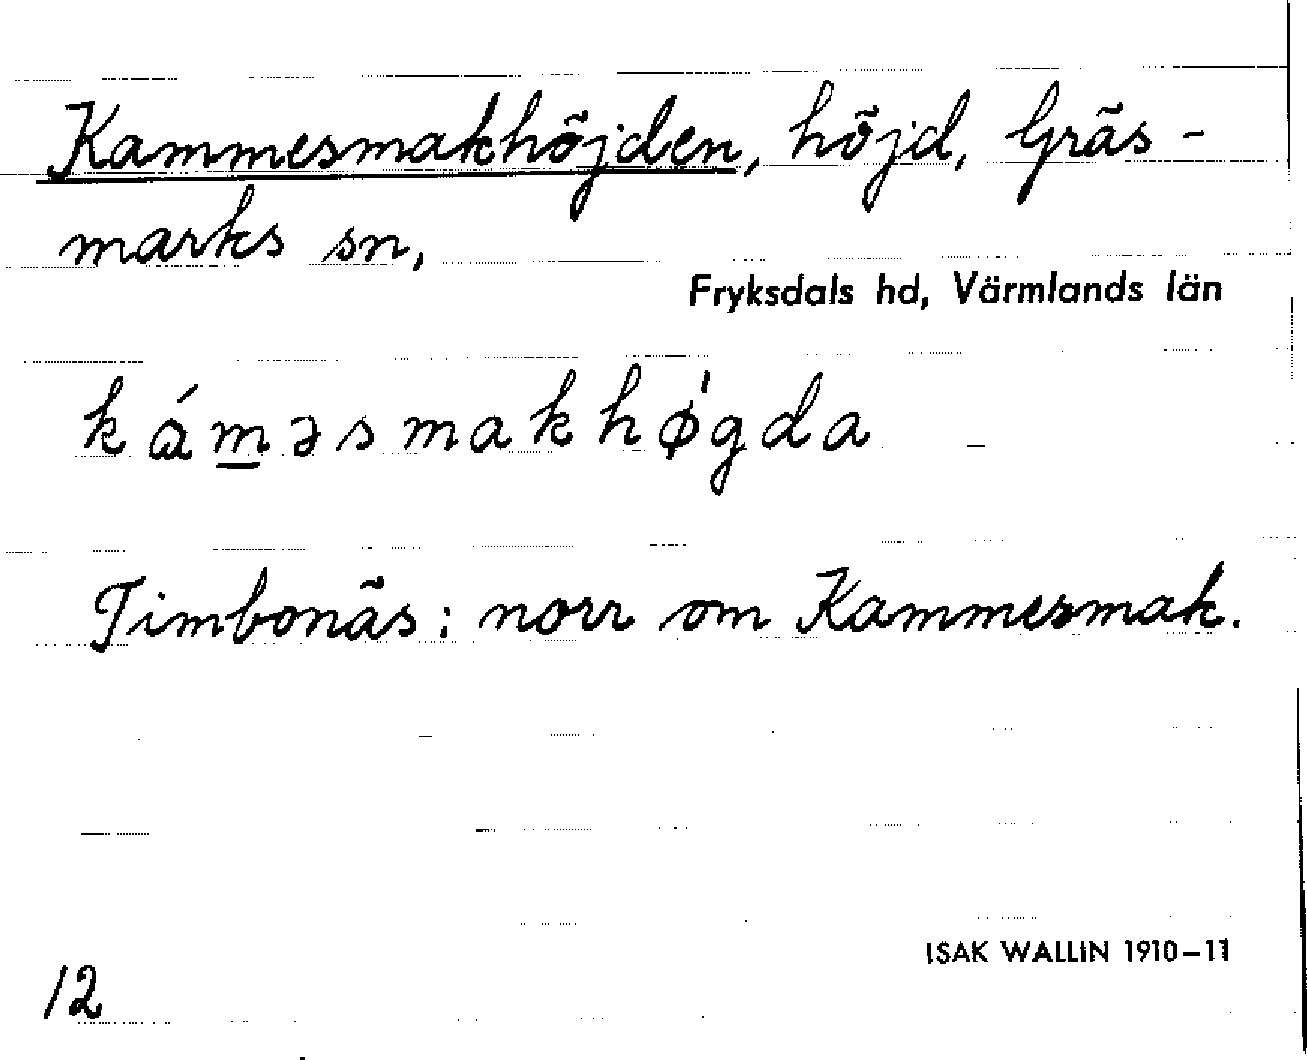 Kammesmakhöjden, höjd, Gräs-
marks sn,
Fryksdals hd, Värmlands län
kám̲əsmakhǿgda
Timbonäs: norr om Kammesmak.
ISAK WALLIN 1910–11
12